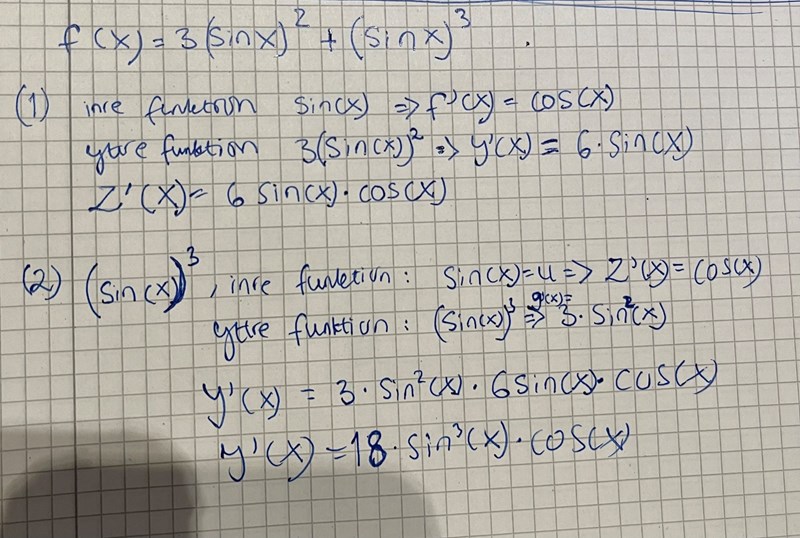 f(x) = 3(sinx)² + (sinx)³
(1) inre funktion sin(x) => f'(x) = cos(x)
yttre funktion 3(sin(x))² => y'(x) = 6·sin(x)
Z'(x) = 6 sin(x)·cos(x)
(2) (sin(x))³, inre funktion: sin(x)=u => Z'(x) = cos(x)
yttre funktion: (sin(x))³ => g'(x)= 3·sin²(x)
y'(x) = 3·sin²(x)·6sin(x)·cos(x)
y'(x) = 18·sin³(x)·cos(x)